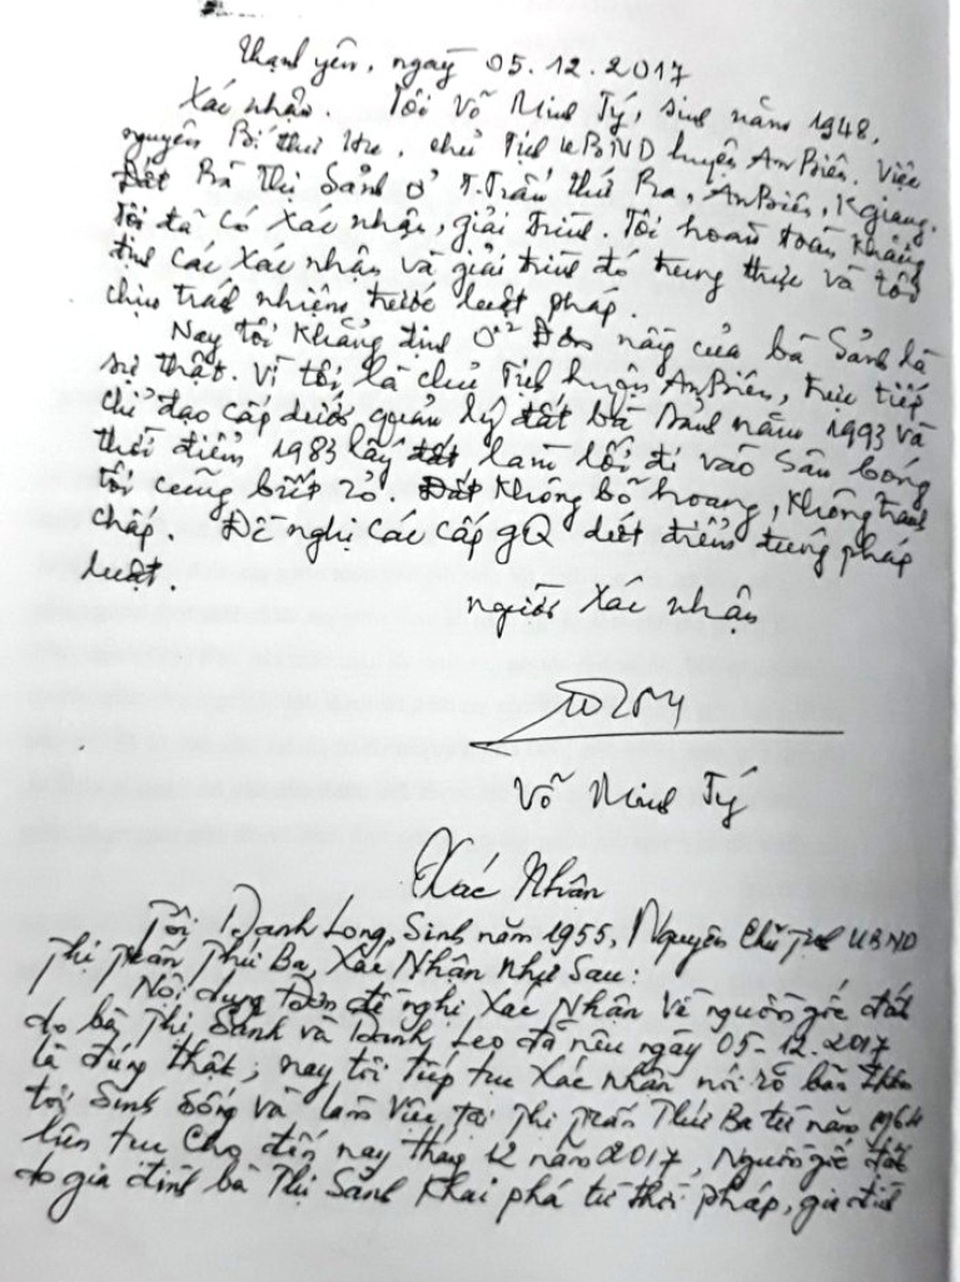 Thạnh yên, ngày 05.12.2017
Xác nhận. Tôi Võ Minh Tý, sinh năm 1948,
nguyên Bí thư, chủ Tịch UBND huyện An Biên. Việc
Đất Bà Thị Sảnh ở T.Trấn thứ Ba, An Biên, K giang.
Tôi đã có xác nhận, giải trình. Tôi hoàn toàn khẳng
định các xác nhận và giải trình đó trung thực và tôi
chịu trách nhiệm trước luật pháp.
Nay tôi khẳng định ở Đơn này của bà Sảnh là
sự thật. Vì tôi là chủ Tịch huyện An Biên, trực tiếp
chỉ đạo cấp dưới quản lý đất bà Sảnh năm 1993 và
thời điểm 1983 lấy đất làm lối đi vào Sân bóng
tôi cũng biết rõ. Đất không bỏ hoang, không tranh
chấp. Đề nghị các cấp gQ dứt điểm đúng pháp
luật.
người xác nhận
Võ Minh Tý
Xác Nhân
Tôi Danh Long, Sinh năm 1955, Nguyên Chủ Tịch UBND
Thị trấn Thứ Ba, Xác Nhân Như Sau:
Nội dung Đơn đề nghị Xác Nhân về nguồn gốc đất
do bà Thị Sảnh và Danh Leo đã nêu ngày 05-12.2017
là đúng thật; nay tôi tiếp tục xác nhân nói rõ bản thân
tôi Sinh sống và làm việc tại Thị trấn Thứ Ba từ năm 1964
liên tục cho đến nay tháng 12 năm 2017, Nguồn gốc đất
do gia đình bà Thị Sảnh khai phá từ thời pháp, gia đình